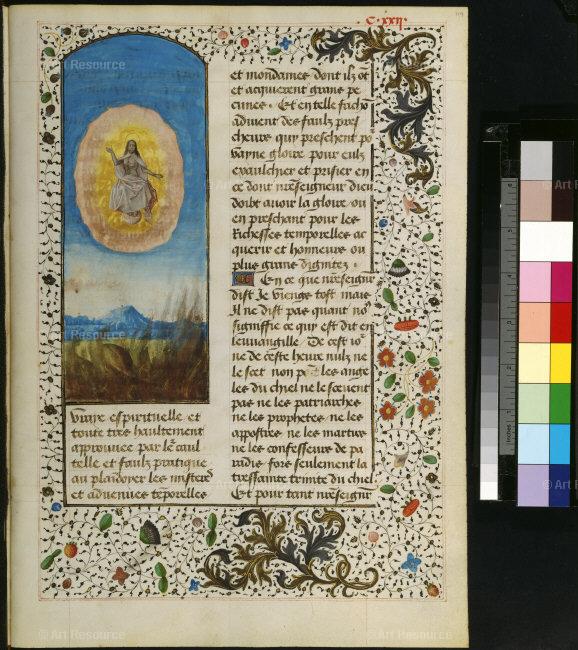 C. xxij.
vraye espirituelle et
toute tres haultement
approuuee par le cau
telle et faulx pratique
au plaidoyer les misteres
et aduenues temporelles
et mondaines dont ilz ot
et acquierent grans pe
cunes. Et en telle facho
aduient des faulx pres
cheurs quy preschent po
vayne gloire pour eulz
exaulchier et prisier en
ce dont nreseigneur dieu
doibt auoir la gloire ou
en preschant pour les
Richesses temporelles ac
querir et honneurs ou
plus grans dignites.
En ce que nreseigneur
dist Je vienge tost mais
Il ne dist pas quant no
signiffie ce quy est dit en
leuuangille. De cest io
ne de ceste heure nulz ne
le scet non pas les ange
les du ciel ne le sceuent
pas ne les patriarches
ne les prophetes ne les
appostres ne les martirs
ne les confesseurs de pa
radis fors seulement la
tressainte trinite du ciel.
Et pour tant nreseignr
© Art Resource
inches